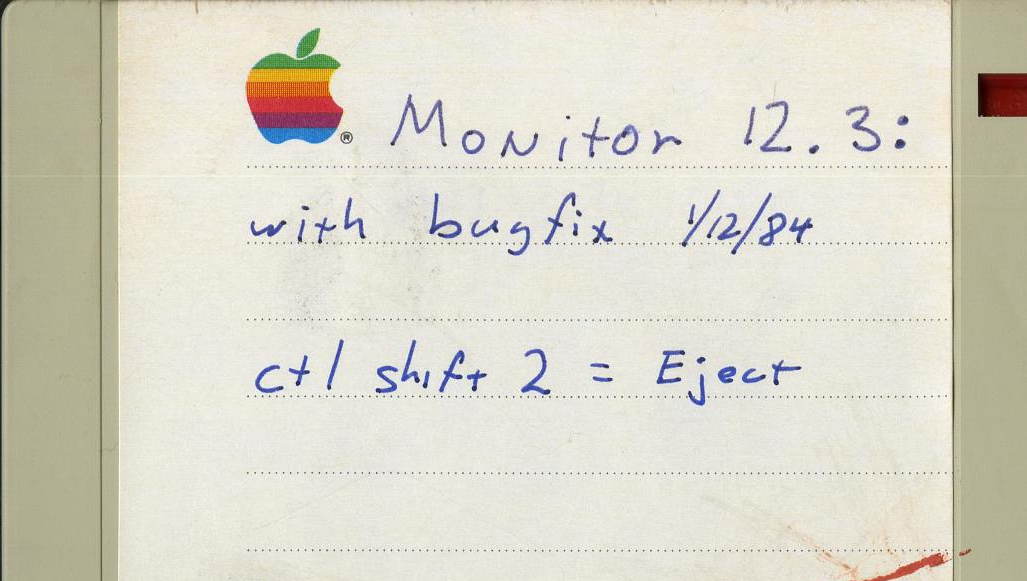 Monitor 12.3:
with bugfix 1/12/84
ctl shift 2 = Eject